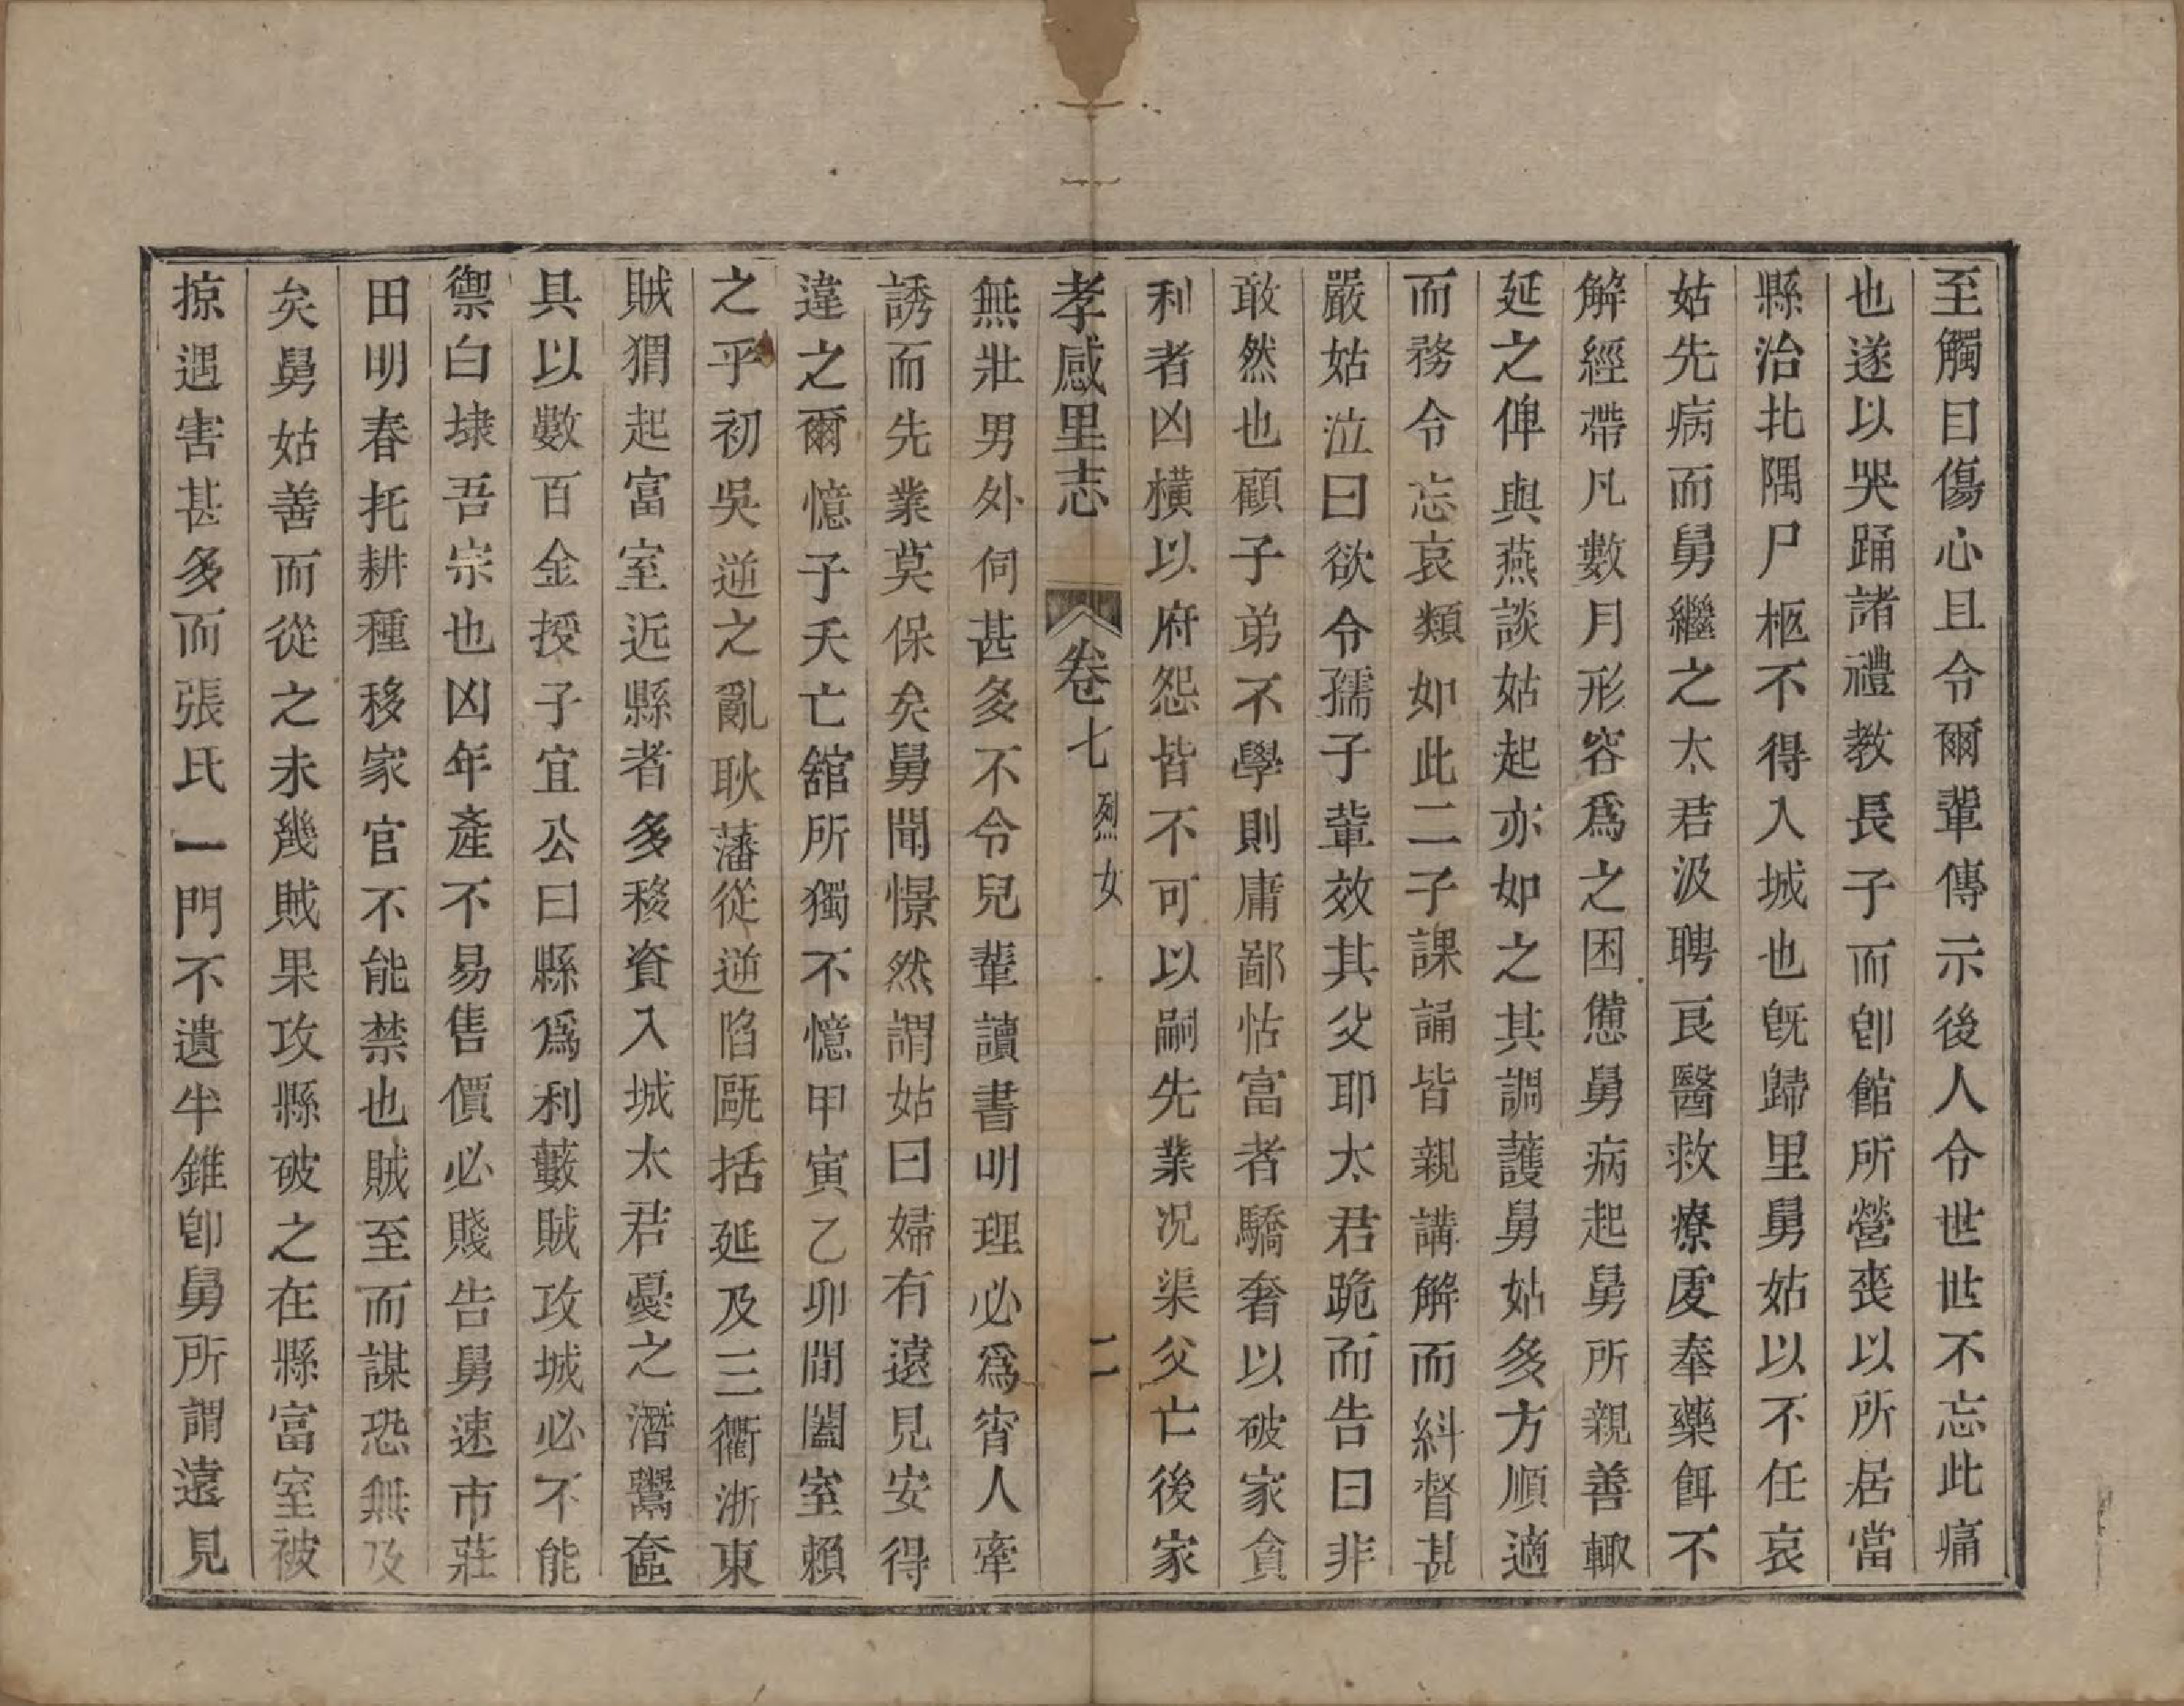 至觸目傷心且令爾輩傳示後人令世世不忘此痛
也遂以哭踊諸禮教長子而卽館所營喪以所居當
縣治北隅尸柩不得入城也旣歸里舅姑以不任哀
姑先病而舅繼之太君汲聘良醫救療虔奉藥餌不
解經帶凡數月形容爲之困憊舅病起舅所親善輙
延之俾與燕談姑起亦如之其調護舅姑多方順適
而務令忘哀類如此二子課誦皆親講解而糾督甚
嚴姑泣曰欲令孺子輩效其父耶太君跪而告曰非
敢然也顧子弟不學則庸鄙怙富者驕奢以破家貪
利者凶橫以府怨皆不可以嗣先業況渠父亡後家
孝感里志 卷七 烈女 二
無壯男外伺甚多不令兒輩讀書明理必爲宵人牽
誘而先業莫保矣舅聞憬然謂姑曰婦有遠見安得
違之爾憶子夭亡舘所獨不憶甲寅乙卯間闔室賴
之乎初吳逆之亂耿藩從逆陷甌括延及三衢浙東
賊猬起富室近縣者多移資入城太君憂之潛鬻奩
具以數百金授子宜公曰縣爲利藪賊攻城必不能
禦白埭吾宗也凶年產不易售價必賤告舅速市莊
田明春托耕種移家官不能禁也賊至而謀恐無及
矣舅姑善而從之未幾賊果攻縣破之在縣富室被
掠遇害甚多而張氏一門不遺半錐卽舅所謂遠見